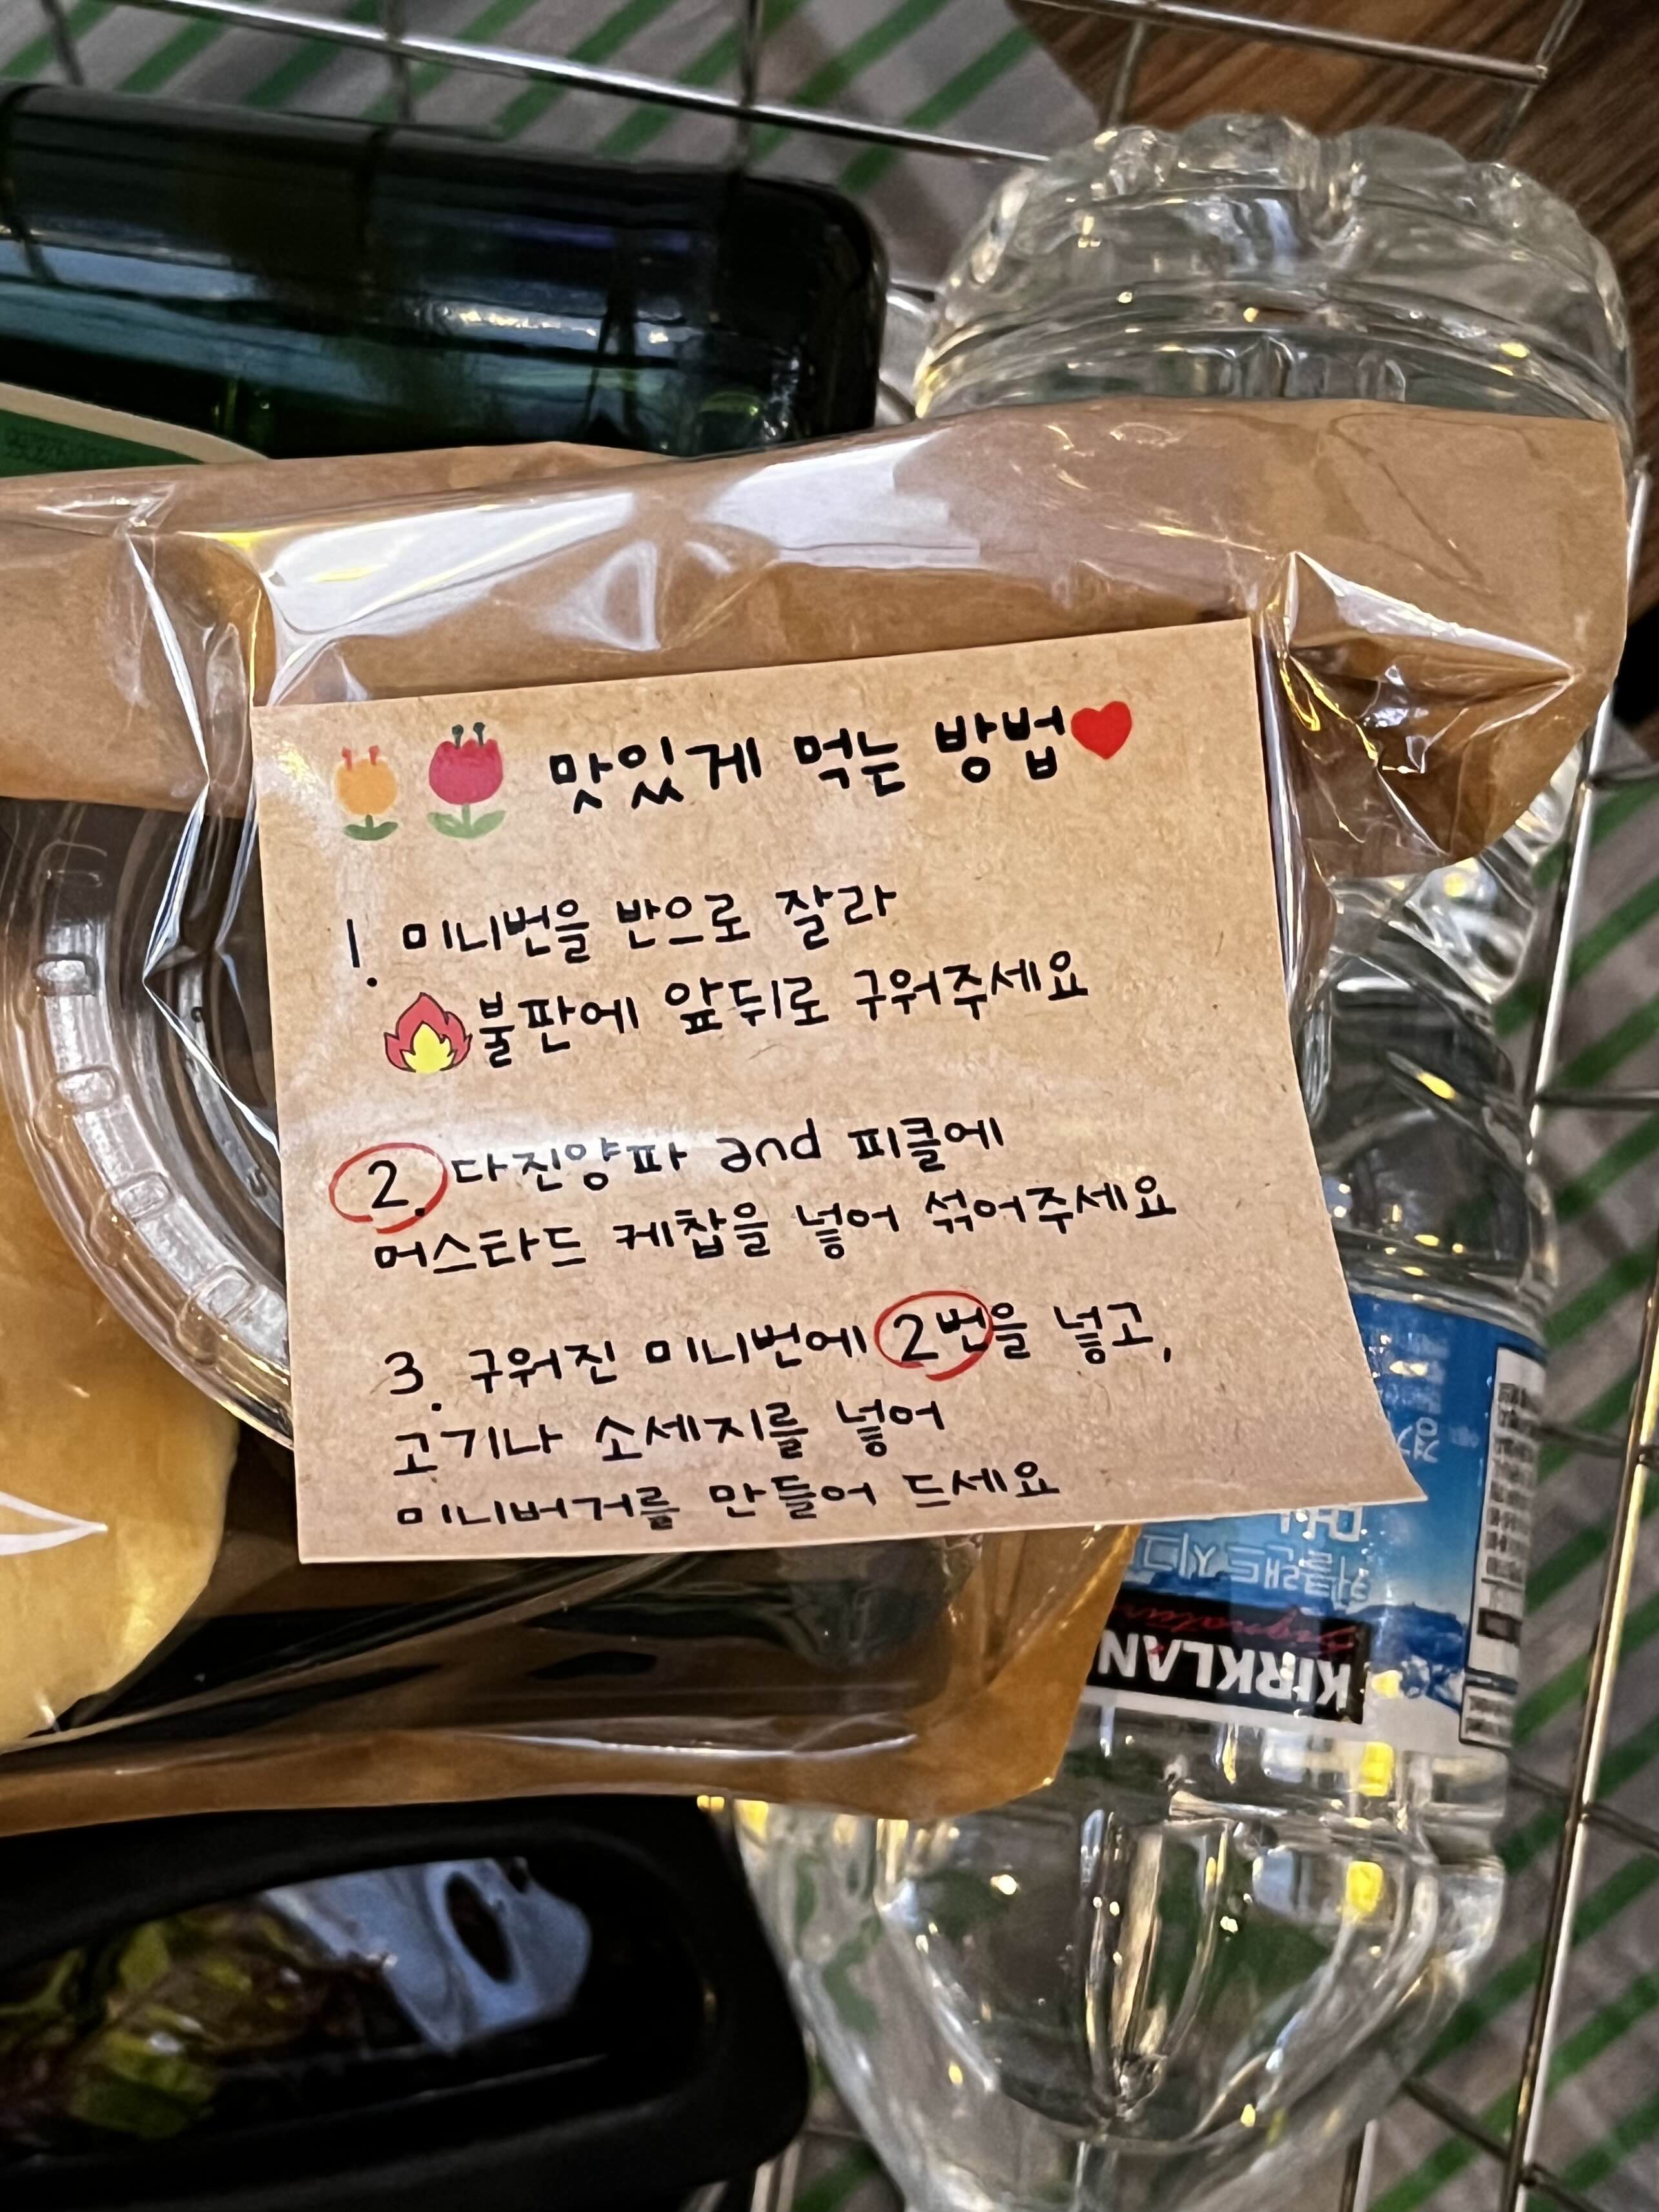 맛있게 먹는 방법
1. 미니번을 반으로 잘라
불판에 앞뒤로 구워주세요
2. 다진양파 and 피클에
머스타드 케찹을 넣어 섞어주세요
3. 구워진 미니번에 2번을 넣고,
고기나 소세지를 넣어
미니버거를 만들어 드세요
KIRKLAN
Signatur